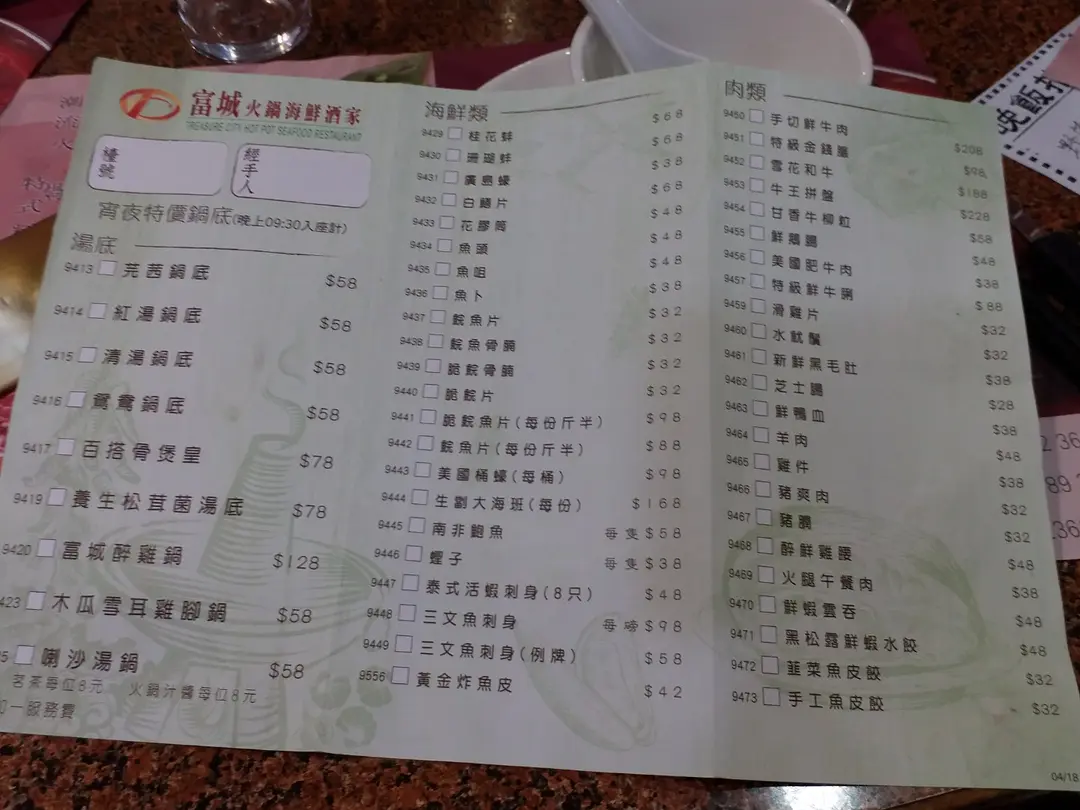 富城火鍋海鮮酒家
TREASURE CITY HOT POT SEAFOOD RESTAURANT
檯號
經手人
宵夜特價鍋底(晚上09:30入座計)
湯底
9413 芫茜鍋底 $58
9414 紅湯鍋底 $58
9415 清湯鍋底 $58
9416 鴛鴦鍋底 $58
9417 百搭骨煲皇 $78
9419 養生松茸菌湯底 $78
9420 富城醉雞鍋 $128
423 木瓜雪耳雞腳鍋 $58
5 喇沙湯鍋 $58
茗茶每位8元 火鍋汁醬每位8元
加一服務費
海鮮類
9429 桂花蚌 $68
9430 珊瑚蚌 $68
9431 廣島蠔 $38
9432 白鱔片 $68
9433 花膠筒 $48
9434 魚頭 $48
9435 魚咀 $48
9436 魚卜 $38
9437 鯇魚片 $32
9438 鯇魚骨腩 $32
9439 脆鯇骨腩 $32
9440 脆鯇片 $32
9441 脆鯇魚片(每份斤半) $98
9442 鯇魚片(每份斤半) $88
9443 美國桶蠔(每桶) $98
9444 生劏大海班(每份) $168
9445 南非鮑魚 每隻$58
9446 蟶子 每隻$38
9447 泰式活蝦刺身(8只) $48
9448 三文魚刺身 每磅$98
9449 三文魚刺身(例牌) $58
9556 黃金炸魚皮 $42
肉類
9450 手切鮮牛肉 $208
9451 特級金錢𦟌 $98
9452 雪花和牛 $188
9453 牛王拼盤 $228
9454 甘香牛柳粒 $58
9455 鮮鵝腸 $48
9456 美國肥牛肉 $38
9457 特級鮮牛脷 $88
9459 滑雞片 $32
9460 水魷鬚 $32
9461 新鮮黑毛肚 $38
9462 芝士腸 $28
9463 鮮鴨血 $38
9464 羊肉 $48
9465 雞件 $38
9466 豬爽肉 $32
9467 豬膶 $32
9468 醉鮮雞腰 $48
9469 火腿午餐肉 $38
9470 鮮蝦雲吞 $48
9471 黑松露鮮蝦水餃 $48
9472 韮菜魚皮餃 $32
9473 手工魚皮餃 $32
04/18